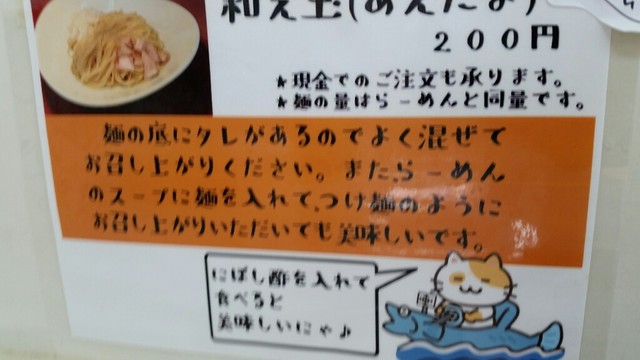 和え玉(あえだま)
200円
★現金でのご注文も承ります。
★麺の量はらーめんと同量です。
麺の底にタレがあるのでよく混ぜて
お召し上がりください。また、らーめん
のスープに麺を入れて、つけ麺のように
お召し上がりいただいても美味しいです。
にぼし酢を入れて
食べると
美味しいにゃ♪